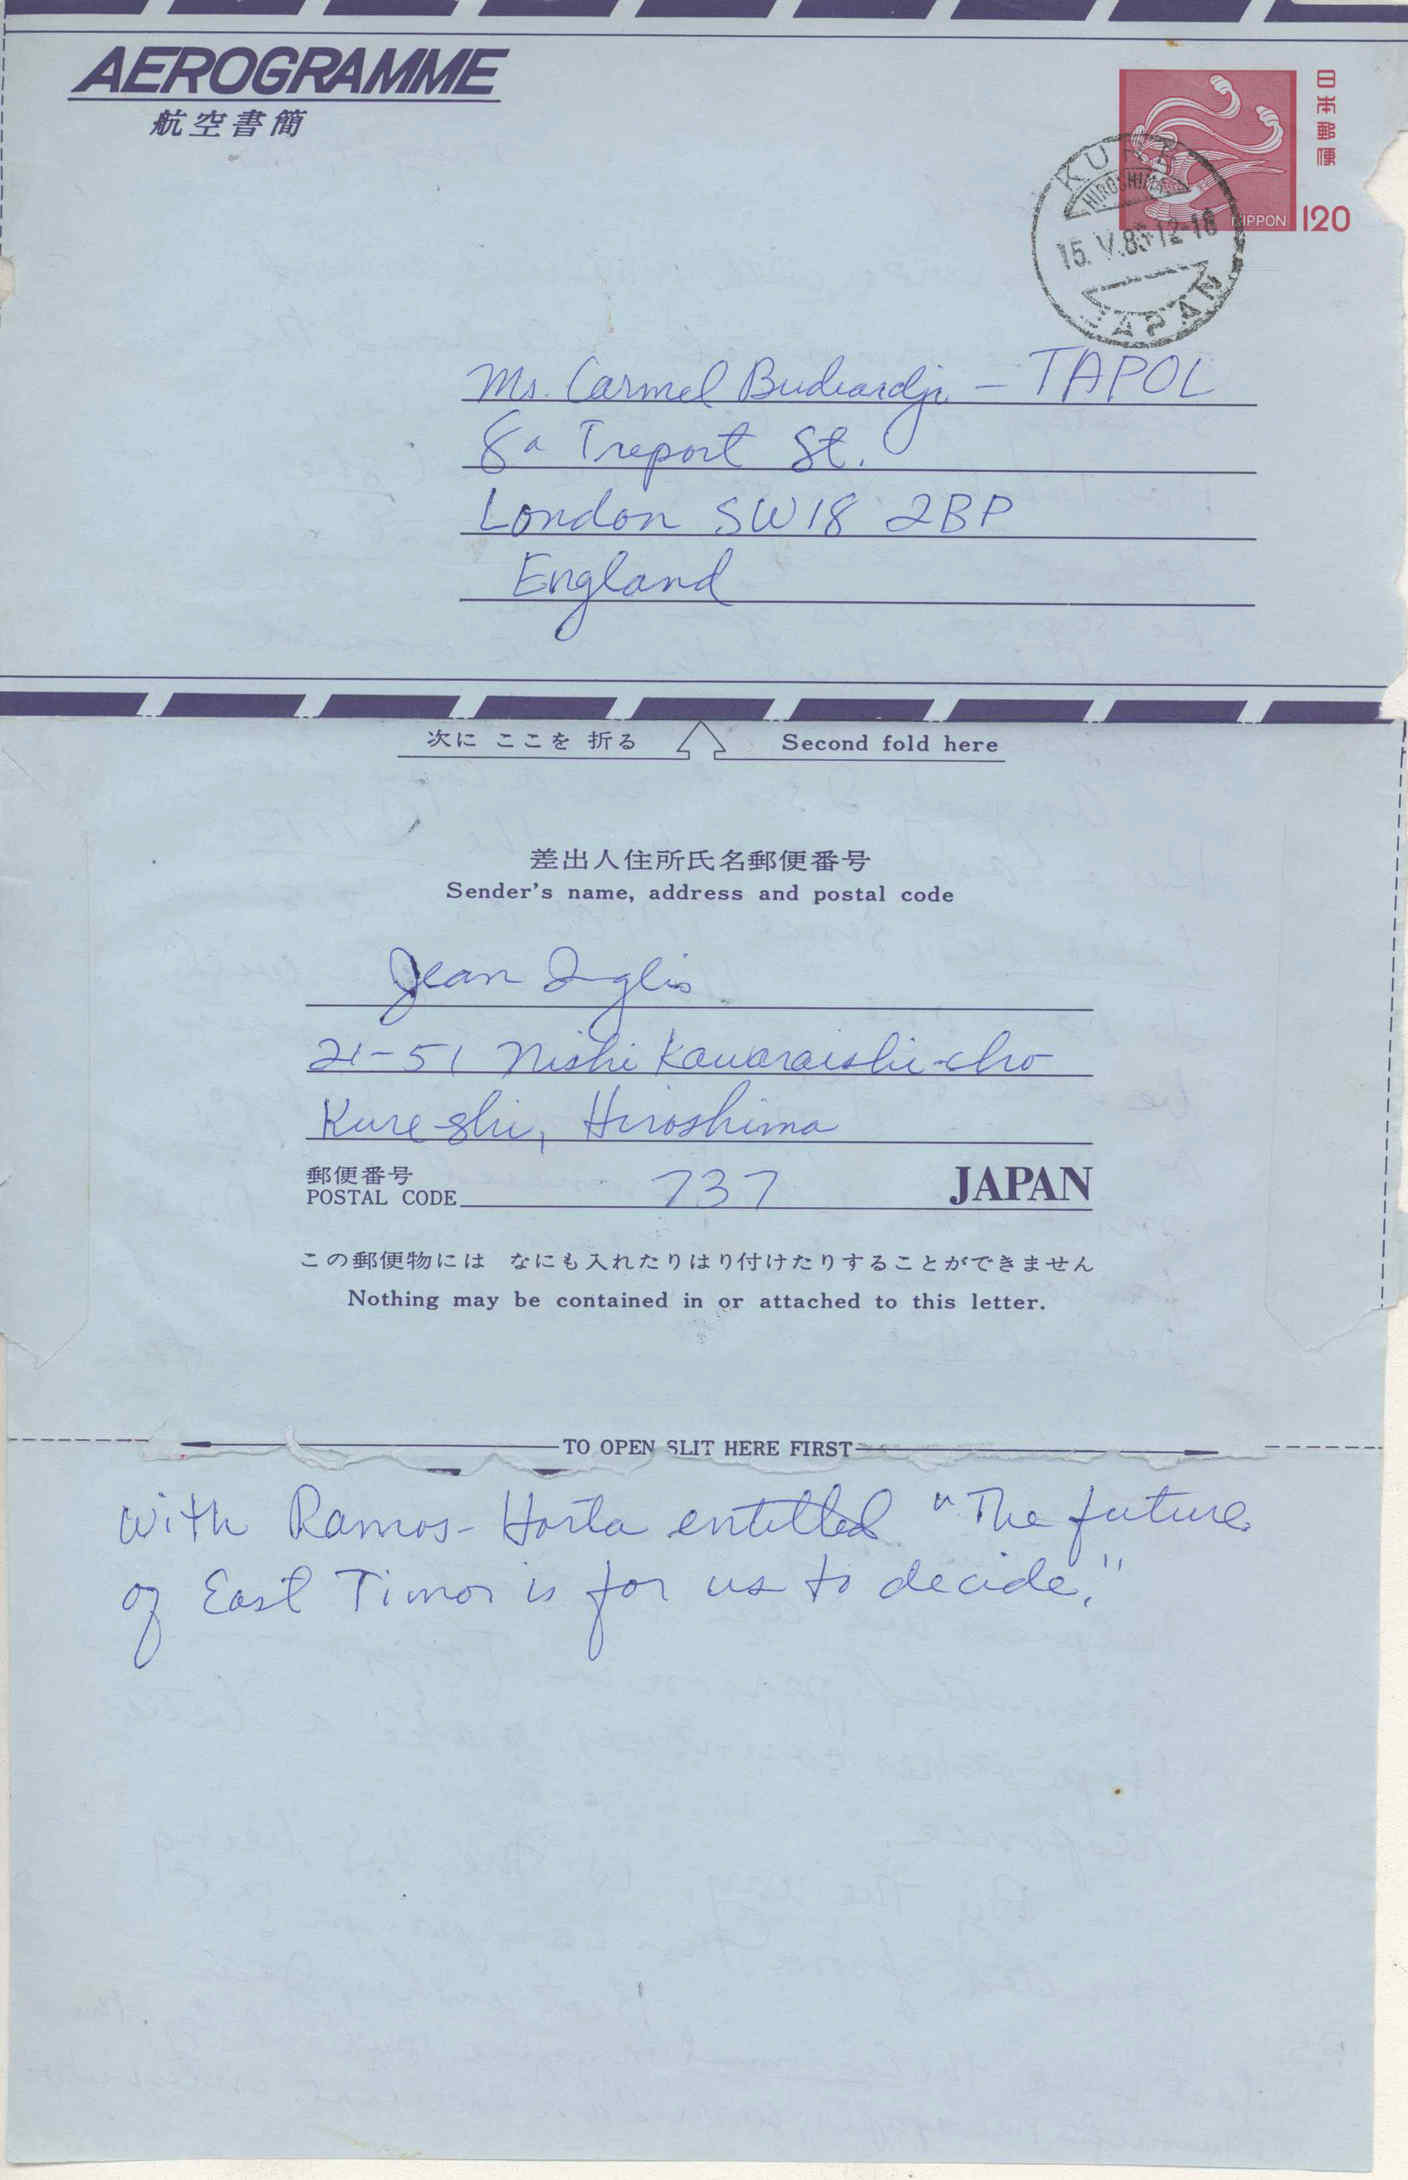 AEROGRAMME
航空書簡
日本郵便
NIPPON 120
KURE
HIROSHIMA
15. V. 12-18
JAPAN
Ms. Carmel Budiardjo – TAPOL
8a Treport St.
London SW18 2BP
England
次に ここを 折る Second fold here
差出人住所氏名郵便番号
Sender's name, address and postal code
Jean Inglis
21-51 Nishi Kawaraishi-cho
Kure-shi, Hiroshima
郵便番号
POSTAL CODE 737 JAPAN
この郵便物には なにも入れたりはり付けたりすることができません
Nothing may be contained in or attached to this letter.
TO OPEN SLIT HERE FIRST
with Ramos-Horta entitled "The future
of East Timor is for us to decide."